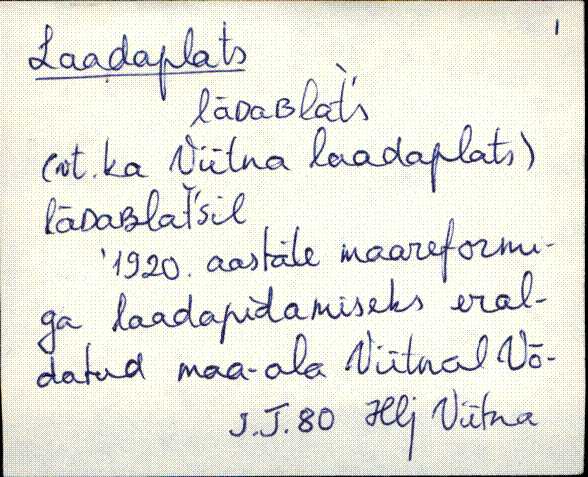 1
Laadaplats
lāDaBlat̀s
(vt. ka Viitna laadaplats)
lāDaBlat̀sil
'1920. aastate maareformi-
ga laadapidamiseks eral-
datud maa-ala Viitnal Võ-
J.T.80 Hlj Viitna